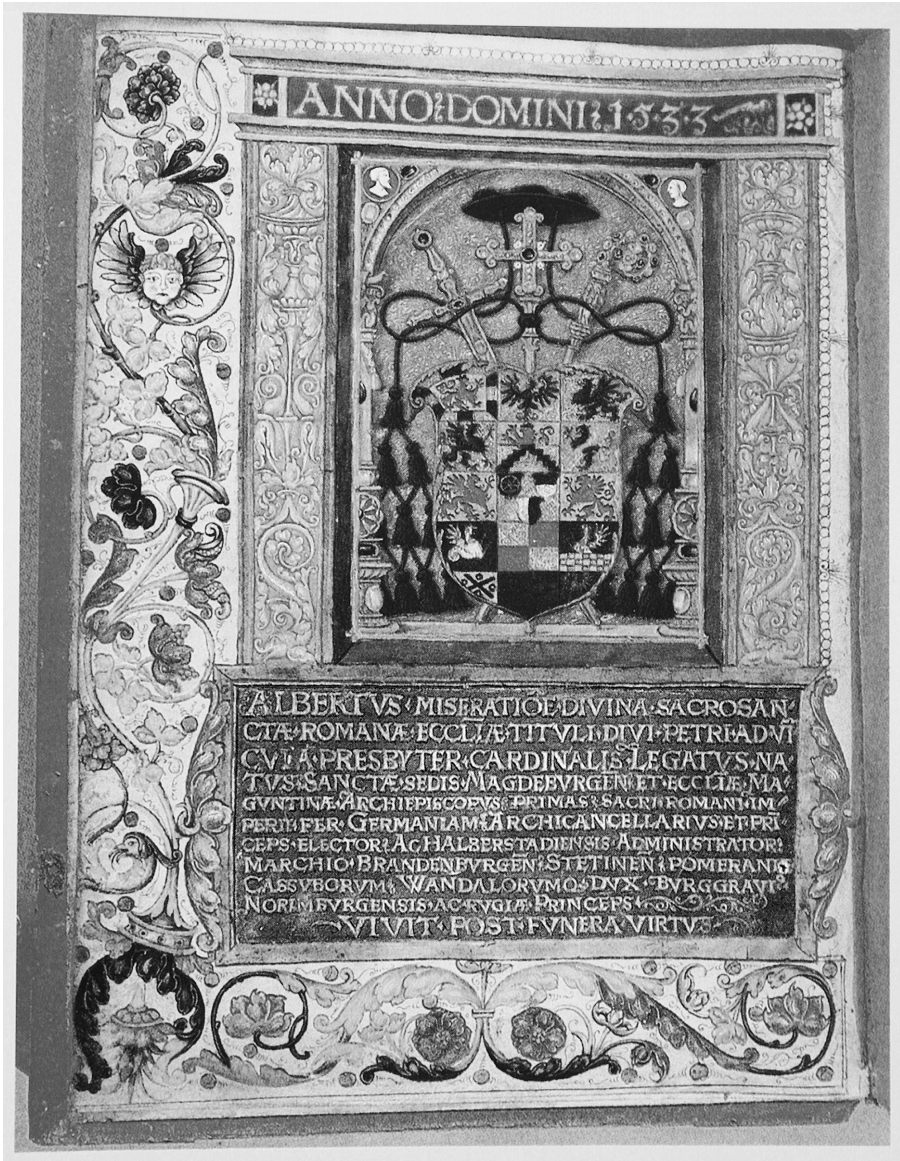 ANNO DOMINI 1·5·3·3·
ALBERTVS · MISERATIŌE · DIVINA · SACROSAN̄
CTÆ · ROMANÆ · ECCLIÆ · TITVLI · DIVI · PETRI · AD VĪ
CVLA · PRESBYTER · CARDINALIS · LEGATVS · NA
TVS · SANCTÆ · SEDIS · MAGDEBVRGEN̄ · ET · ECCLIÆ · MA
GVNTINÆ · ARCHIEPISCOPVS · PRIMAS · SACRI · ROMANI · IM
PERII · PER · GERMANIAM · ARCHICANCELLARIVS · ET · PRI
CEPS · ELECTOR · AC HALBERSTADIENSIS · ADMINISTRATOR ·
MARCHIO · BRANDENBVRGEN̄ · STETINEN̄ · POMERANIÆ
CASSVBORVM · WANDALORVMQ · DVX · BVRGGRAVI⁹
NORIMBVRGENSIS · AC · RVGIÆ · PRINCEPS ·
VIVIT · POST · FVNERA VIRTVS